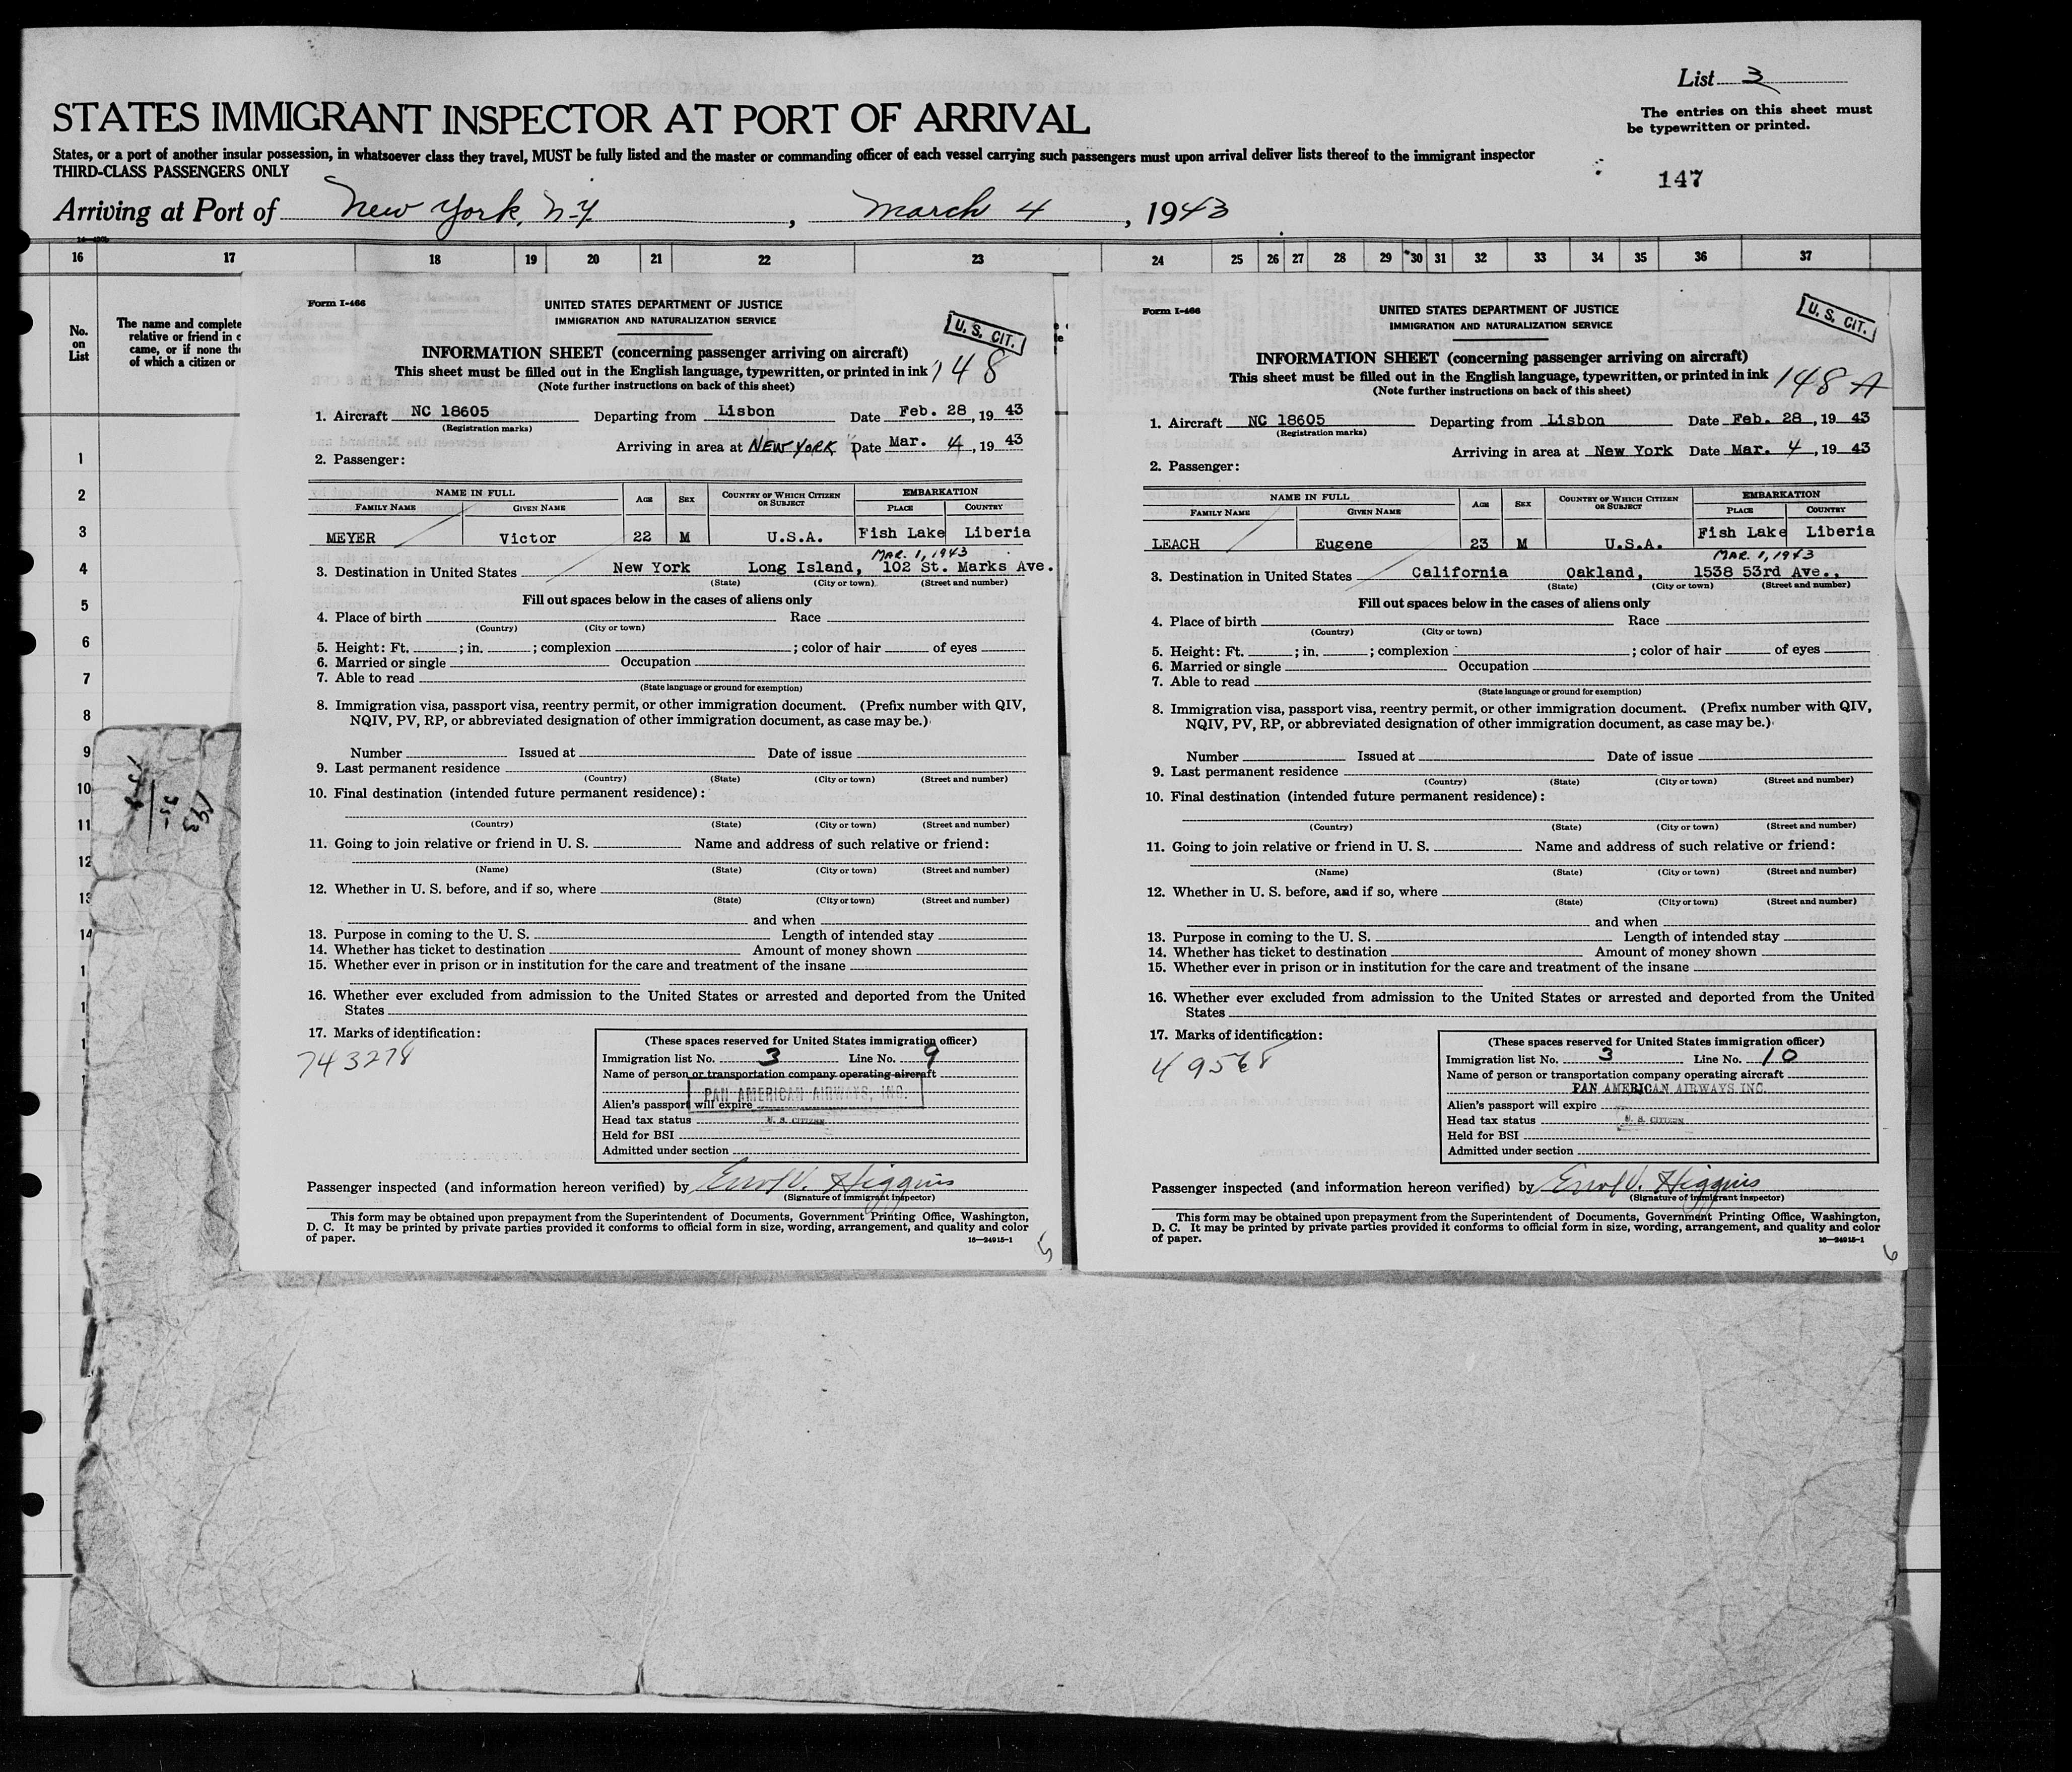 List 3
The entries on this sheet must
be typewritten or printed.
STATES IMMIGRANT INSPECTOR AT PORT OF ARRIVAL
States, or a port of another insular possession, in whatsoever class they travel, MUST be fully listed and the master or commanding officer of each vessel carrying such passengers must upon arrival deliver lists thereof to the immigrant inspector
THIRD-CLASS PASSENGERS ONLY
147
Arriving at Port of New York, N.Y. , March 4 , 1943
16 17 18 19 20 21 22 23 24 25 26 27 28 29 30 31 32 33 34 35 36 37
No.
on
List
The name and complete
relative or friend in c
came, or if none the
of which a citizen or
1
2
3
4
5
6
7
8
9
10
11
12
13
14
Form I-466
UNITED STATES DEPARTMENT OF JUSTICE
IMMIGRATION AND NATURALIZATION SERVICE
U. S. CIT.
INFORMATION SHEET (concerning passenger arriving on aircraft)
This sheet must be filled out in the English language, typewritten, or printed in ink
148
(Note further instructions on back of this sheet)
1. Aircraft NC 18605 Departing from Lisbon Date Feb. 28, 19 43
(Registration marks)
Arriving in area at NEW YORK Date Mar. 4, 19 43
2. Passenger:
NAME IN FULL AGE SEX COUNTRY OF WHICH CITIZEN OR SUBJECT EMBARKATION
FAMILY NAME GIVEN NAME PLACE COUNTRY
MEYER Victor 22 M U.S.A. Fish Lake Liberia
MAR. 1, 1943
3. Destination in United States New York Long Island, 102 St. Marks Ave.
(State) (City or town) (Street and number)
Fill out spaces below in the cases of aliens only
4. Place of birth Race
(Country) (City or town)
5. Height: Ft. ; in. ; complexion ; color of hair of eyes
6. Married or single Occupation
7. Able to read
(State language or ground for exemption)
8. Immigration visa, passport visa, reentry permit, or other immigration document. (Prefix number with QIV,
NQIV, PV, RP, or abbreviated designation of other immigration document, as case may be.)
Number Issued at Date of issue
9. Last permanent residence
(Country) (State) (City or town) (Street and number)
10. Final destination (intended future permanent residence):
(Country) (State) (City or town) (Street and number)
11. Going to join relative or friend in U. S. Name and address of such relative or friend:
(Name) (State) (City or town) (Street and number)
12. Whether in U. S. before, and if so, where
(State) (City or town) (Street and number)
and when
13. Purpose in coming to the U. S. Length of intended stay
14. Whether has ticket to destination Amount of money shown
15. Whether ever in prison or in institution for the care and treatment of the insane
16. Whether ever excluded from admission to the United States or arrested and deported from the United
States
17. Marks of identification:
743278
(These spaces reserved for United States immigration officer)
Immigration list No. 3 Line No. 9
Name of person or transportation company operating aircraft
PAN AMERICAN AIRWAYS, INC.
Alien's passport will expire
Head tax status U. S. CITIZEN
Held for BSI
Admitted under section
Passenger inspected (and information hereon verified) by Errol V. Higgins
(Signature of immigrant inspector)
This form may be obtained upon prepayment from the Superintendent of Documents, Government Printing Office, Washington,
D. C. It may be printed by private parties provided it conforms to official form in size, wording, arrangement, and quality and color
of paper. 16—24915-1
5
Form I-466
UNITED STATES DEPARTMENT OF JUSTICE
IMMIGRATION AND NATURALIZATION SERVICE
U. S. CIT.
INFORMATION SHEET (concerning passenger arriving on aircraft)
This sheet must be filled out in the English language, typewritten, or printed in ink
148 A
(Note further instructions on back of this sheet)
1. Aircraft NC 18605 Departing from Lisbon Date Feb. 28, 19 43
(Registration marks)
Arriving in area at New York Date Mar. 4, 19 43
2. Passenger:
NAME IN FULL AGE SEX COUNTRY OF WHICH CITIZEN OR SUBJECT EMBARKATION
FAMILY NAME GIVEN NAME PLACE COUNTRY
LEACH Eugene 23 M U.S.A. Fish Lake Liberia
MAR. 1, 1943
3. Destination in United States California Oakland, 1538 53rd Ave.,
(State) (City or town) (Street and number)
Fill out spaces below in the cases of aliens only
4. Place of birth Race
(Country) (City or town)
5. Height: Ft. ; in. ; complexion ; color of hair of eyes
6. Married or single Occupation
7. Able to read
(State language or ground for exemption)
8. Immigration visa, passport visa, reentry permit, or other immigration document. (Prefix number with QIV,
NQIV, PV, RP, or abbreviated designation of other immigration document, as case may be.)
Number Issued at Date of issue
9. Last permanent residence
(Country) (State) (City or town) (Street and number)
10. Final destination (intended future permanent residence):
(Country) (State) (City or town) (Street and number)
11. Going to join relative or friend in U. S. Name and address of such relative or friend:
(Name) (State) (City or town) (Street and number)
12. Whether in U. S. before, and if so, where
(State) (City or town) (Street and number)
and when
13. Purpose in coming to the U. S. Length of intended stay
14. Whether has ticket to destination Amount of money shown
15. Whether ever in prison or in institution for the care and treatment of the insane
16. Whether ever excluded from admission to the United States or arrested and deported from the United
States
17. Marks of identification:
49568
(These spaces reserved for United States immigration officer)
Immigration list No. 3 Line No. 10
Name of person or transportation company operating aircraft
PAN AMERICAN AIRWAYS, INC.
Alien's passport will expire
Head tax status U. S. CITIZEN
Held for BSI
Admitted under section
Passenger inspected (and information hereon verified) by Errol V. Higgins
(Signature of immigrant inspector)
This form may be obtained upon prepayment from the Superintendent of Documents, Government Printing Office, Washington,
D. C. It may be printed by private parties provided it conforms to official form in size, wording, arrangement, and quality and color
of paper. 16—24915-1
6